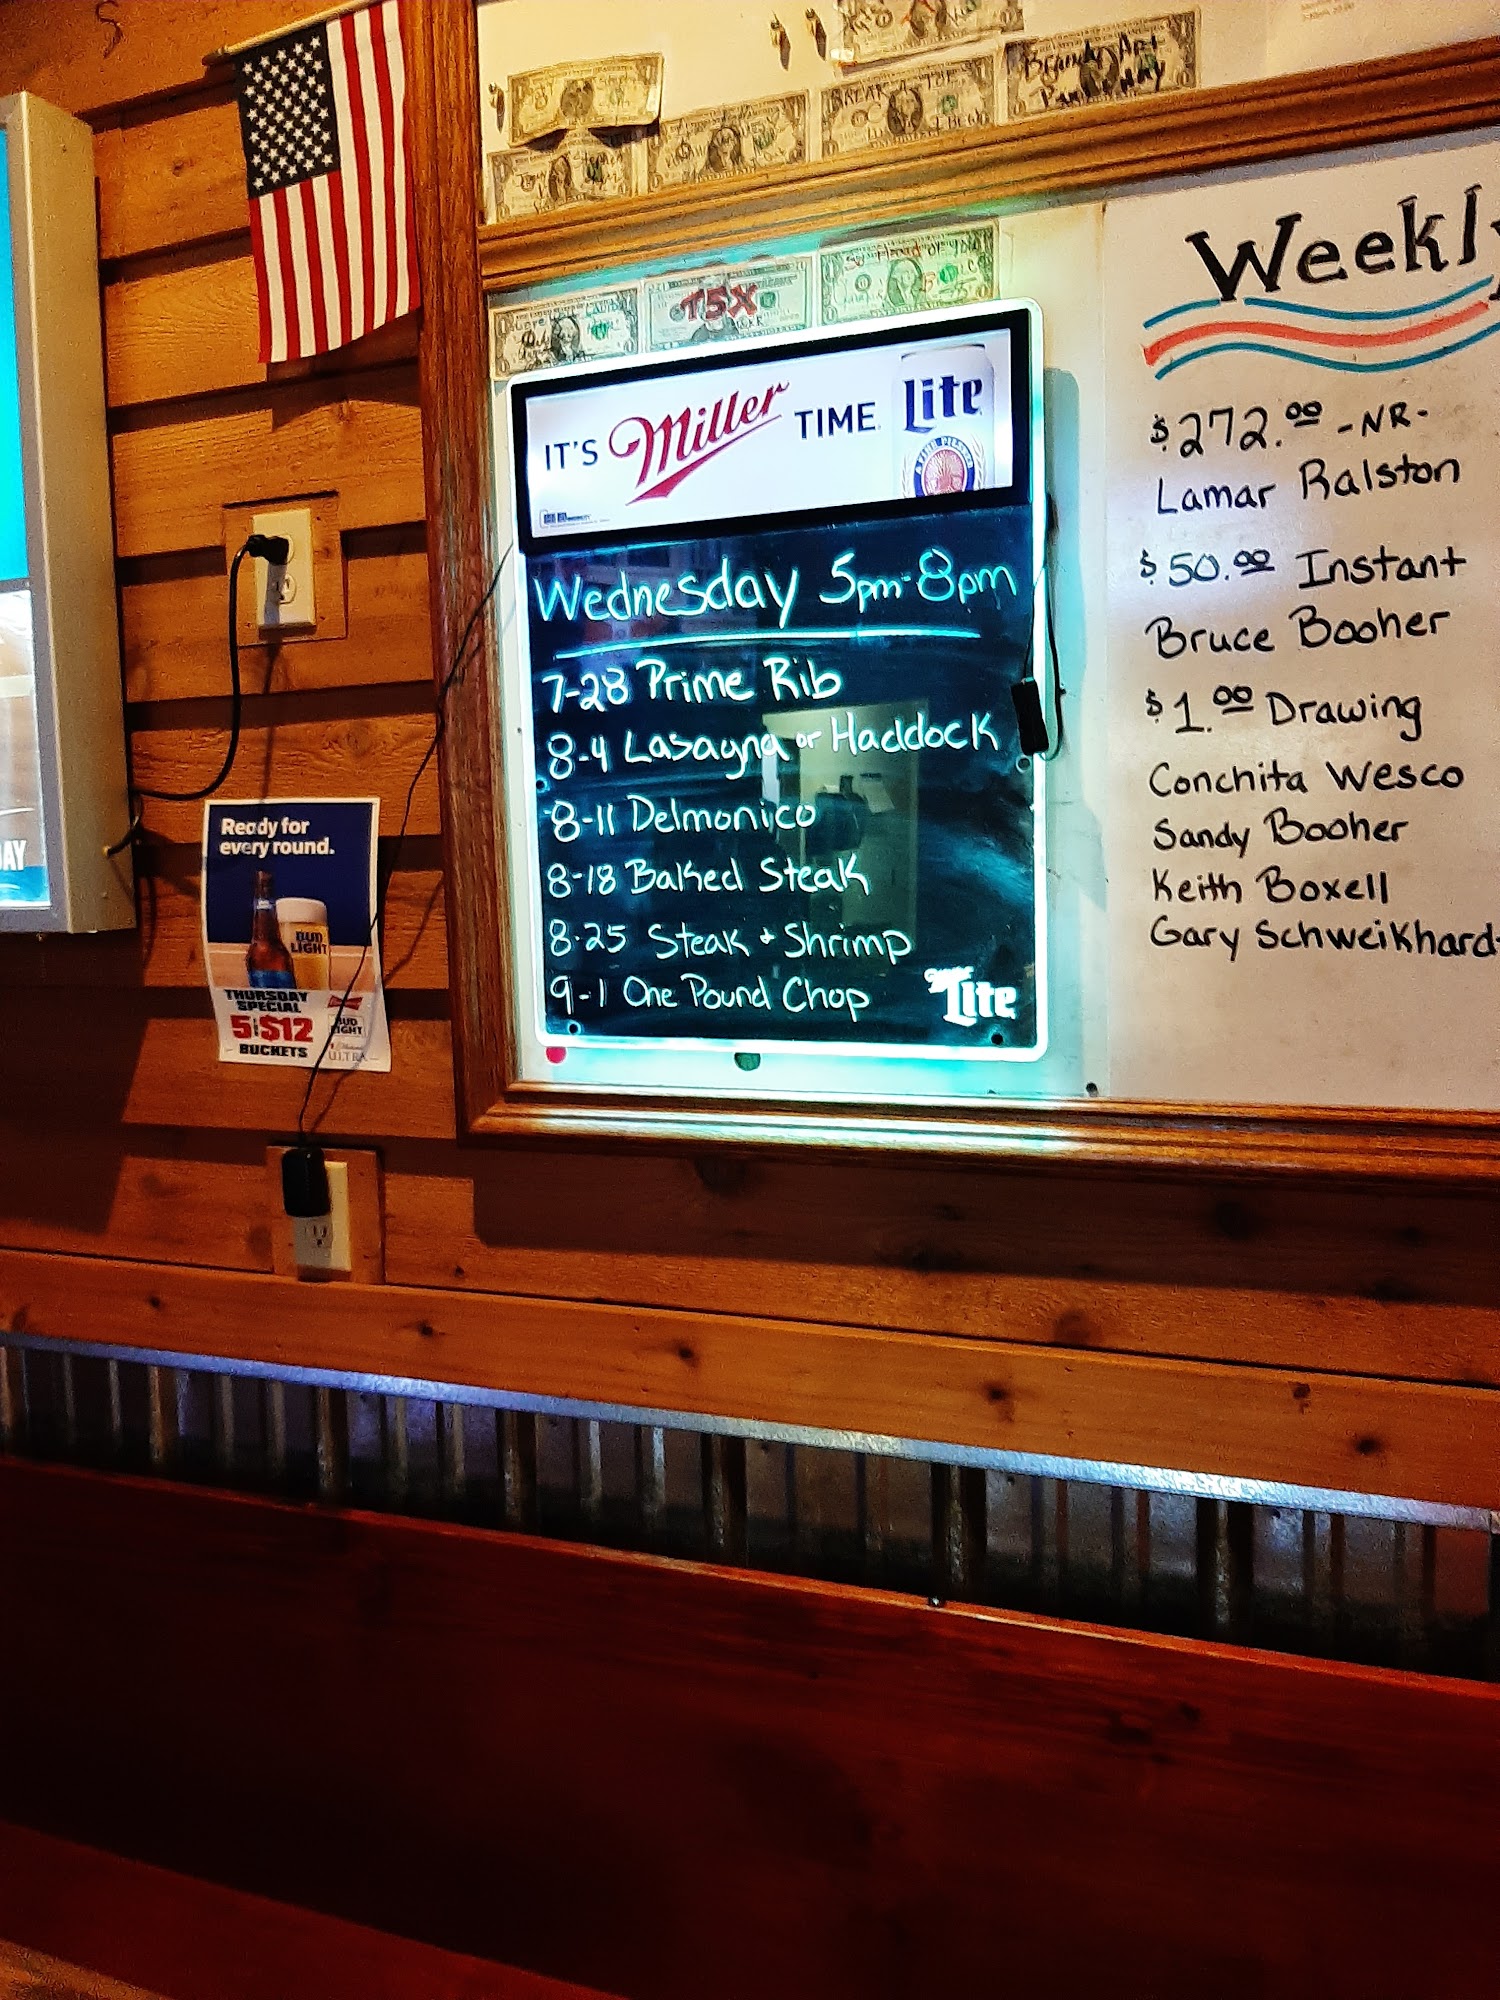 T5X
IT'S Miller TIME Lite
A FINE PILSNER
Wednesday 5pm-8pm
7-28 Prime Rib
8-4 Lasagna or Haddock
8-11 Delmonico
8-18 Baked Steak
8-25 Steak & Shrimp
9-1 One Pound Chop
Miller Lite
Weekly
$272.00 -NR-
Lamar Ralston
$50.00 Instant
Bruce Booher
$1.00 Drawing
Conchita Wesco
Sandy Booher
Keith Boxell
Gary Schweikhard
Ready for
every round.
BUD LIGHT
THURSDAY
SPECIAL
5 $12
BUCKETS
BUD LIGHT
ULTRA
AY